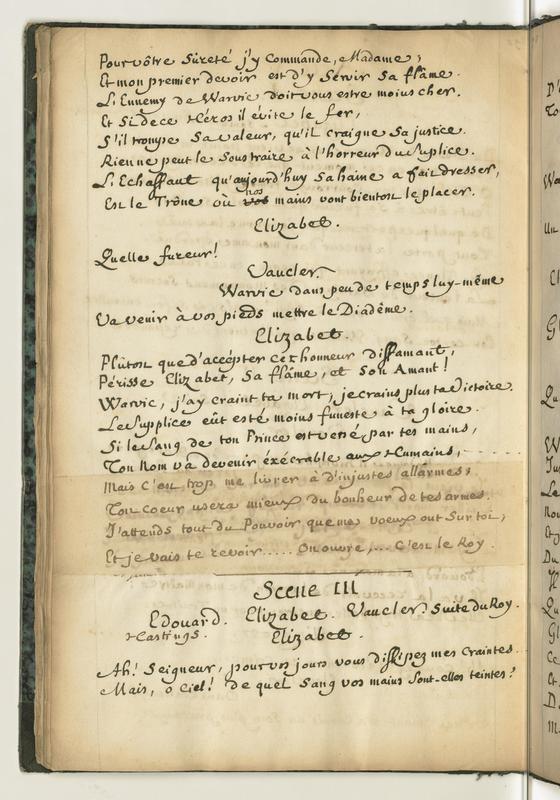 Pour vôtre Sûreté j'y Commande, Madame;
Et mon premier devoir est d'y Servir Sa flâme.
L'Ennemy de Warvic doit vous estre moins cher.
Et Si de ce Héros il évite le fer,
S'il trompe Sa valeur, qu'il craigne Sa justice.
Rien ne peut le Soustraire à l'horreur du Suplice.
L'Echaffaut qu'aujourd'huy Sa haine a fait dresser,
Est le Trône où vos nos mains vont bientost le placer.
Elizabet.
Quelle fureur!
Vaucler.
Warvic dans peu de temps luy-même
Va venir à vos pieds mettre le Diadême.
Elizabet.
Plûtost que d'accépter cet honneur diffamant,
Périsse Elizabet, Sa flâme, et Son Amant!
Warvic, j'ay craint ta mort; je crains plus ta Victoire.
Le Supplice eût esté moins funeste à ta gloire.
Si le Sang de ton Prince est versé par tes mains,
Ton Nom va devenir éxécrable aux Humains, . . . . .
Mais C'est trop me livrer à d'injustes allarmes;
Ton Coeur usera mieux du bonheur de tes armes.
J'attends tout du Pouvoir que mes voeux ont Sur toi;
Et je vais te revoir ..... On ouvre, ... C'est le Roy.
Scene III
Edouard. Elizabet. Vaucler. Suite du Roy.
Hastings. Elizabet.
Ah! Seigneur, pour vos jours vous dissipez mes Craintes.
Mais, ô Ciel! de quel Sang vos mains Sont-elles teintes?